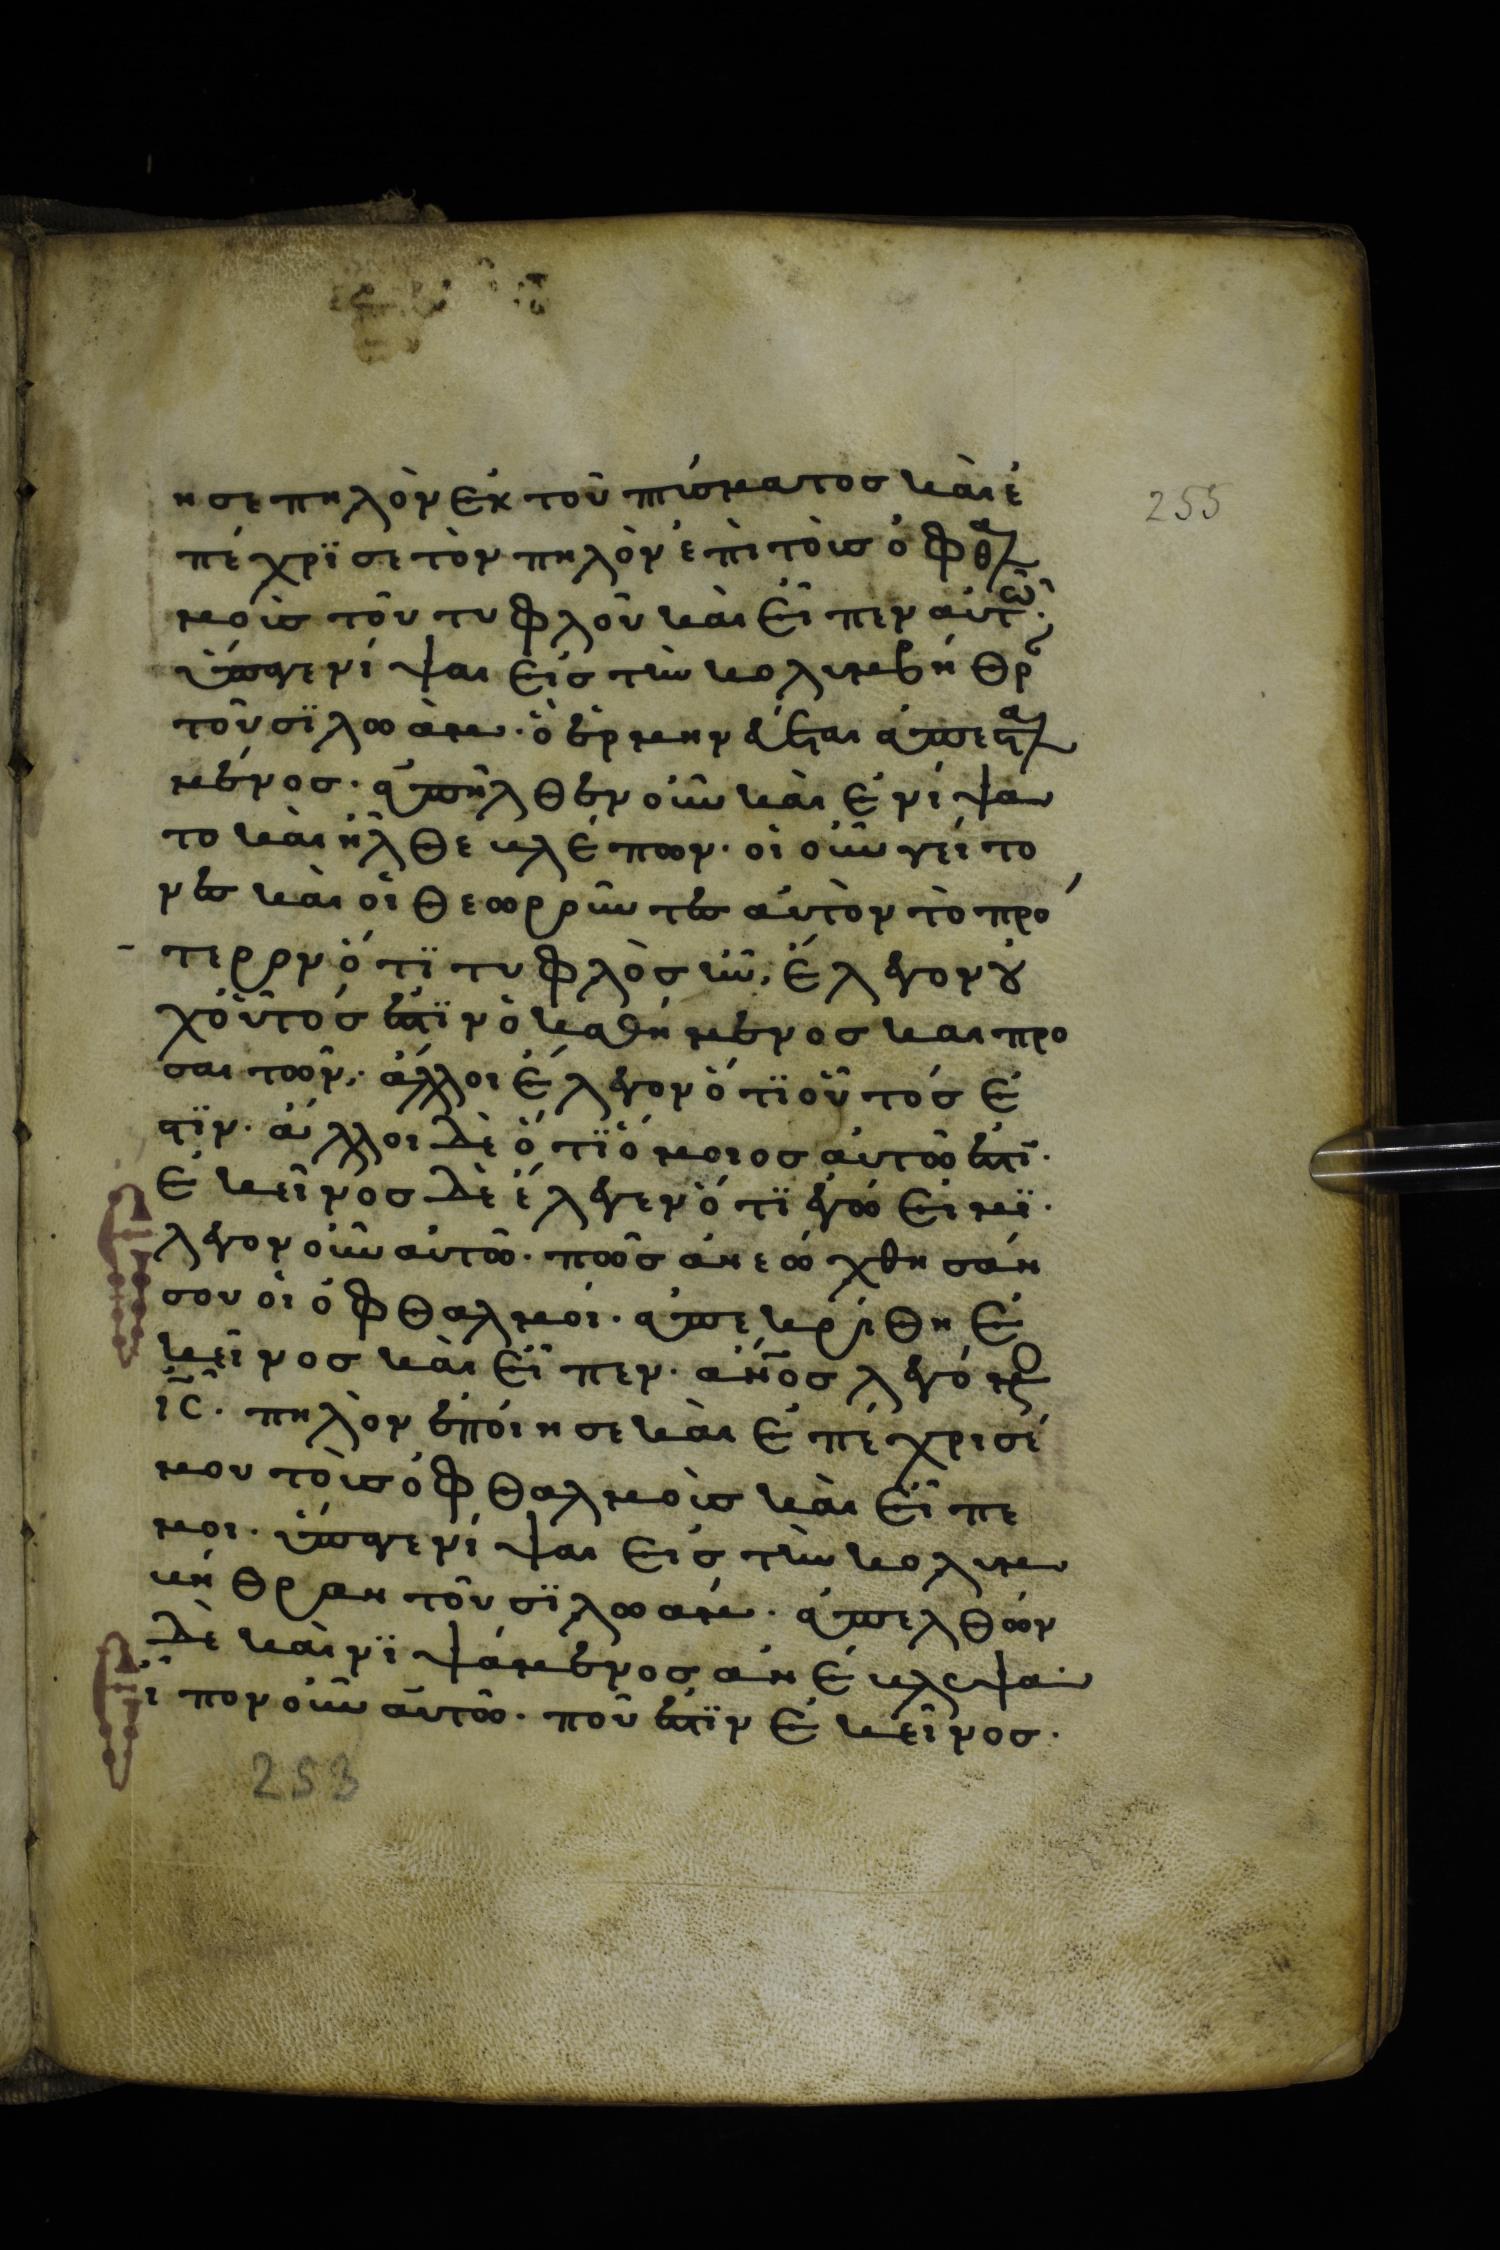 255
ησε πηλὸν ἐκ τοῦ πτύσματος καὶ ἐ
πέχρϊσε τὸν πηλὸν ἐπὶ τοὺσ ὀφθαλ
μοὺσ τοῦ τυφλοῦ καὶ εἶπεν αὐτῶ·
ὕπαγε νίψαι εἰσ τὴν κολυμβήθρ
τοῦ σϊλωάμ· ὃ ἑρμηνεύεται ἀπεσταλ
μένοσ· ἀπῆλθεν οὖν καὶ ἐνίψα
το καὶ ἦλθε βλέπων· οἱ οὖν γείτο
νεσ καὶ οἱ θεωροῦντεσ αὐτὸν τὸ πρό
τερον ὅτϊ τυφλὸσ ἦν, ἔλεγον οὐ
χ οὗτόσ ἐστϊν ὁ καθήμενοσ και προ
σαιτῶν· ἄλλοι ἔλεγον ὅτϊ οὗτόσ ἐ
στϊν· ἄλλοι δὲ ὅτϊ ὅμοιοσ αὐτῶ ἐστϊ·
ἐκεῖνοσ δὲ ἔλεγεν ὅτϊ ἐγώ εἰμϊ·
Ἔλεγον οὖν αὐτῶ· πῶσ ἀνεώχθησάν
σου οἱ ὀφθαλμοί· ἀπεκρίθη ἐ
κεῖνοσ καὶ εἶπεν· ἄνοσ λεγόμενος
ισ· πηλὸν ἐποίησε καὶ ἐπέχρισέ
μου τοὺσ ὀφθαλμοὺσ καὶ εἶπέ
μοι· ὕπαγε νίψαι εἰσ τὴν κολυμ
βήθραν τοῦ σϊλωάμ· ἀπελθὼν
δὲ καὶ νϊψάμενοσ ἀνέβλεψα·
Εἶπον οὖν αὐτῶ· ποῦ ἐστϊν ἐκεῖνοσ·
253